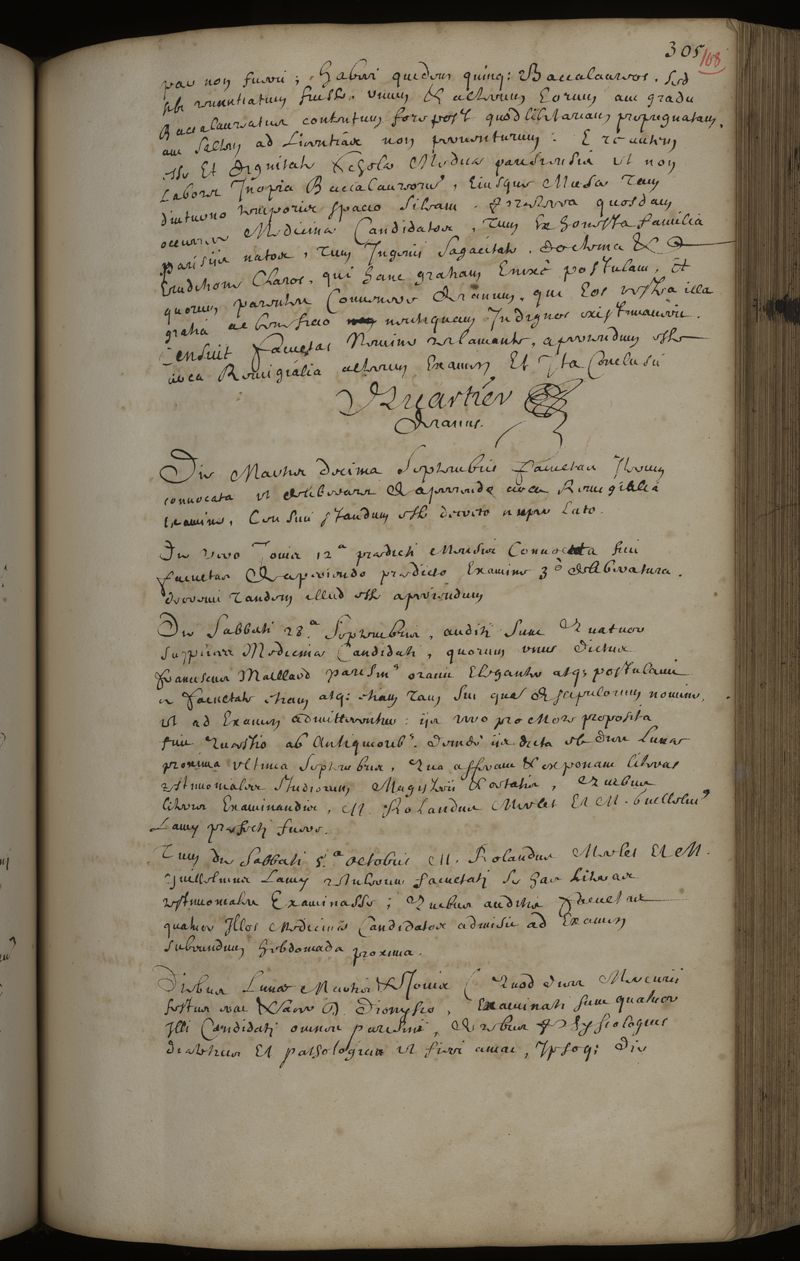 305
108
pas non fuere ; Haberi quidem quinq: Baccalaureos . sed
sibi renuntiatum fuisse . unum & alterum Eorum aut gradu
Baccalaureatus contentum fore post quodlibetariam propugnatam,
aut saltem ad Licentias non perventurum .
esse Et dignitate scholæ Medicæ parisiensis ut non
Laboret Inopia Baccalaureorum , Eiusque Musæ Tam
diuturno temporis spatio sileant . quosdam
Medicinæ Candidatos , Tum Ex Honesta familia
parisiis natos , Tum Ingenii sagacitate , doctrina &
Eruditione Claros , qui Hanc gratiam Enixè postulant , Et
quorum parentes Convenere decanum , qui Eos vestra illa
gratia ac beneficio neutiquam Indignos existimaverit .
Censuit facultas Nomine reclamante , aperiendum esse
circa Remigialia alterum Examen , Et Ita Conclusi
Quartier
decanus .
Die Martis decima Septembris facultas Iterum
convocata ut deliberaret de aperiendo circa Remigialia
Examine , Censuit standum esse decreto nuper Lato .
Die vero Jovis 12a prædicti Mensis Convocata fuit
facultas de aperiendo prædicto Examine 3o deliberatura .
decrevit Tandem illud esse aperiendum
Die Sabbati 28.a Septembris , auditi sunt Quatuor
Medicinæ Candidati , quorum unus dictus
franciscus Maillard parisinus oravit Eleganter atq; postulavit
a facultate etiam atq: etiam Tam sui quam discipulorum nomine,
ut ad Examen admitterentur : iis vero pro More proposita
fuit Questio ab Antiquiorib9. deinde iis dicta est dies Lunæ
proxima ultima Septembris , Qua afferant & exponant literas
testimoniales studiorum Magisterii & ætatis , Quibus
literis Examinandis , M. Rolandus Merlet Et M. Guillelmus
Lamy præfecti fuere .
Tum die Sabbati 5.a octobris M. Rolandus Merlet Et M.
Guillelmus Lamy retulerunt facultati se Has literas
testimoniales Examinasse ; Quibus auditis facultas
quatuor Illos Medicinæ Candidatos admisit ad Examen
subeundum Hebdomada proxima .
Diebus Lunæ Martis & Jovis ( Quod dies Mercurii
festus esset & sacer D. Dionysio , Examinati sunt quatuor
Illi Candidati omnes parisini , de rebus Physiologicis
Et pathologicis ut fieri amat , Ipsoq; die